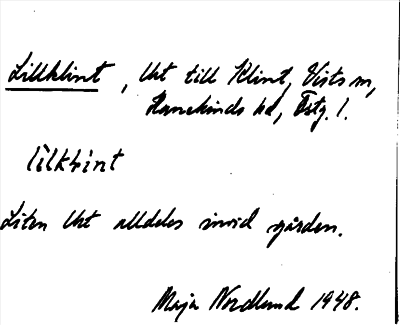 Lillklint, Ut till Klint, Vists sn,
Hanekinds hd, Östg. l.
lilkḷint
Liten Ut alldeles invid gården.
Maja Nordlund 1948.